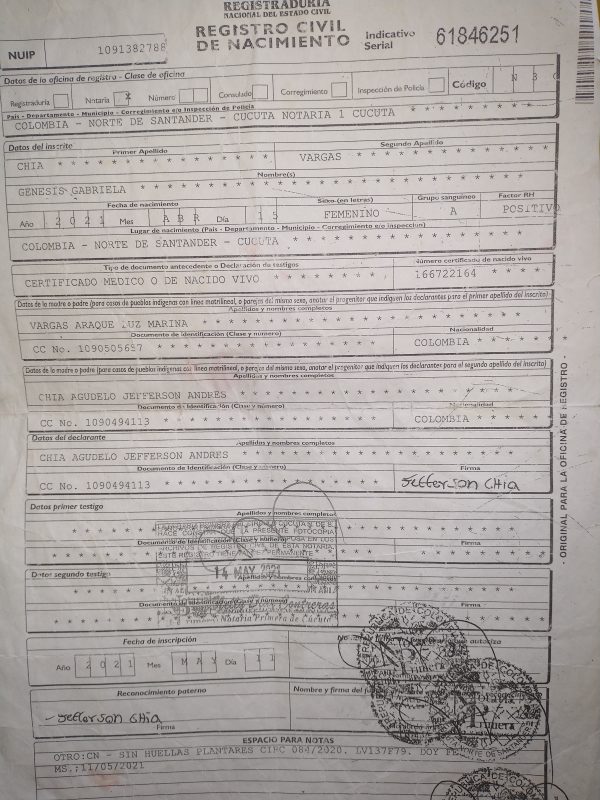 REGISTRADURIA
NACIONAL DEL ESTADO CIVIL
NUIP 1091382788
REGISTRO CIVIL
DE NACIMIENTO
Indicativo
Serial 61846251
Datos de la oficina de registro - Clase de oficina
Registraduría Notaría X Número Consulado Corregimiento Inspección de Policía Código N 3
País - Departamento - Municipio - Corregimiento e/o Inspección de Policía
COLOMBIA - NORTE DE SANTANDER - CUCUTA NOTARIA 1 CUCUTA * * * * * * * * *
Datos del inscrito
Primer Apellido Segundo Apellido
CHIA * * * * * * * * * * * * * * VARGAS * * * * * * * * * * * *
Nombre(s)
GENESIS GABRIELA * * * * * * * * * * * * * * * * * * * * * * *
Fecha de nacimiento Sexo (en letras) Grupo sanguíneo Factor RH
Año 2 0 2 1 Mes A B R Día 1 5 FEMENINO A POSITIVO
Lugar de nacimiento (País - Departamento - Municipio - Corregimiento e/o Inspección)
COLOMBIA - NORTE DE SANTANDER - CUCUTA * * * * * * * * * * * * * *
Tipo de documento antecedente o Declaración de testigos Número certificado de nacido vivo
CERTIFICADO MEDICO O DE NACIDO VIVO * * * * * * * 166722164 * * * *
Datos de la madre o padre (para casos de pueblos indígenas con línea matrilineal, o parejas del mismo sexo, anotar el progenitor que indiquen los declarantes para el primer apellido del inscrito)
Apellidos y nombres completos
VARGAS ARAQUE LUZ MARINA * * * * * * * * * * * * * * * * * * *
Documento de identificación (Clase y número) Nacionalidad
CC No. 1090505657 * * * * * * * * * * * * COLOMBIA * * * * *
Datos de la madre o padre (para casos de pueblos indígenas con línea matrilineal, o parejas del mismo sexo, anotar el progenitor que indiquen los declarantes para el segundo apellido del inscrito)
Apellidos y nombres completos
CHIA AGUDELO JEFFERSON ANDRES * * * * * * * * * * * * * * * *
Documento de Identificación (Clase y número) Nacionalidad
CC No. 1090494113 * * * * * * * * * * * * COLOMBIA * * * *
Datos del declarante
Apellidos y nombres completos
CHIA AGUDELO JEFFERSON ANDRES * * * * * * * * * * * * * * * *
Documento de Identificación (Clase y número) Firma
CC No. 1090494113 * * * * * * * * * * * * Jefferson CHia
Datos primer testigo
Apellidos y nombres completos
Documento de Identificación (Clase y número) Firma
14 MAY 2021
Datos segundo testigo
Apellidos y nombres completos
Documento de Identificación (Clase y número) Firma
Notaria Primera de Cúcuta
Fecha de inscripción
Año 2 0 2 1 Mes M A Y Día 1 1
Reconocimiento paterno
Nombre y firma del
Jefferson CHia
Firma
ESPACIO PARA NOTAS
OTRO:CN - SIN HUELLAS PLANTARES CIRC 084/2020. LV137F79. DOY FE
MS.;11/05/2021
- ORIGINAL PARA LA OFICINA DE REGISTRO -